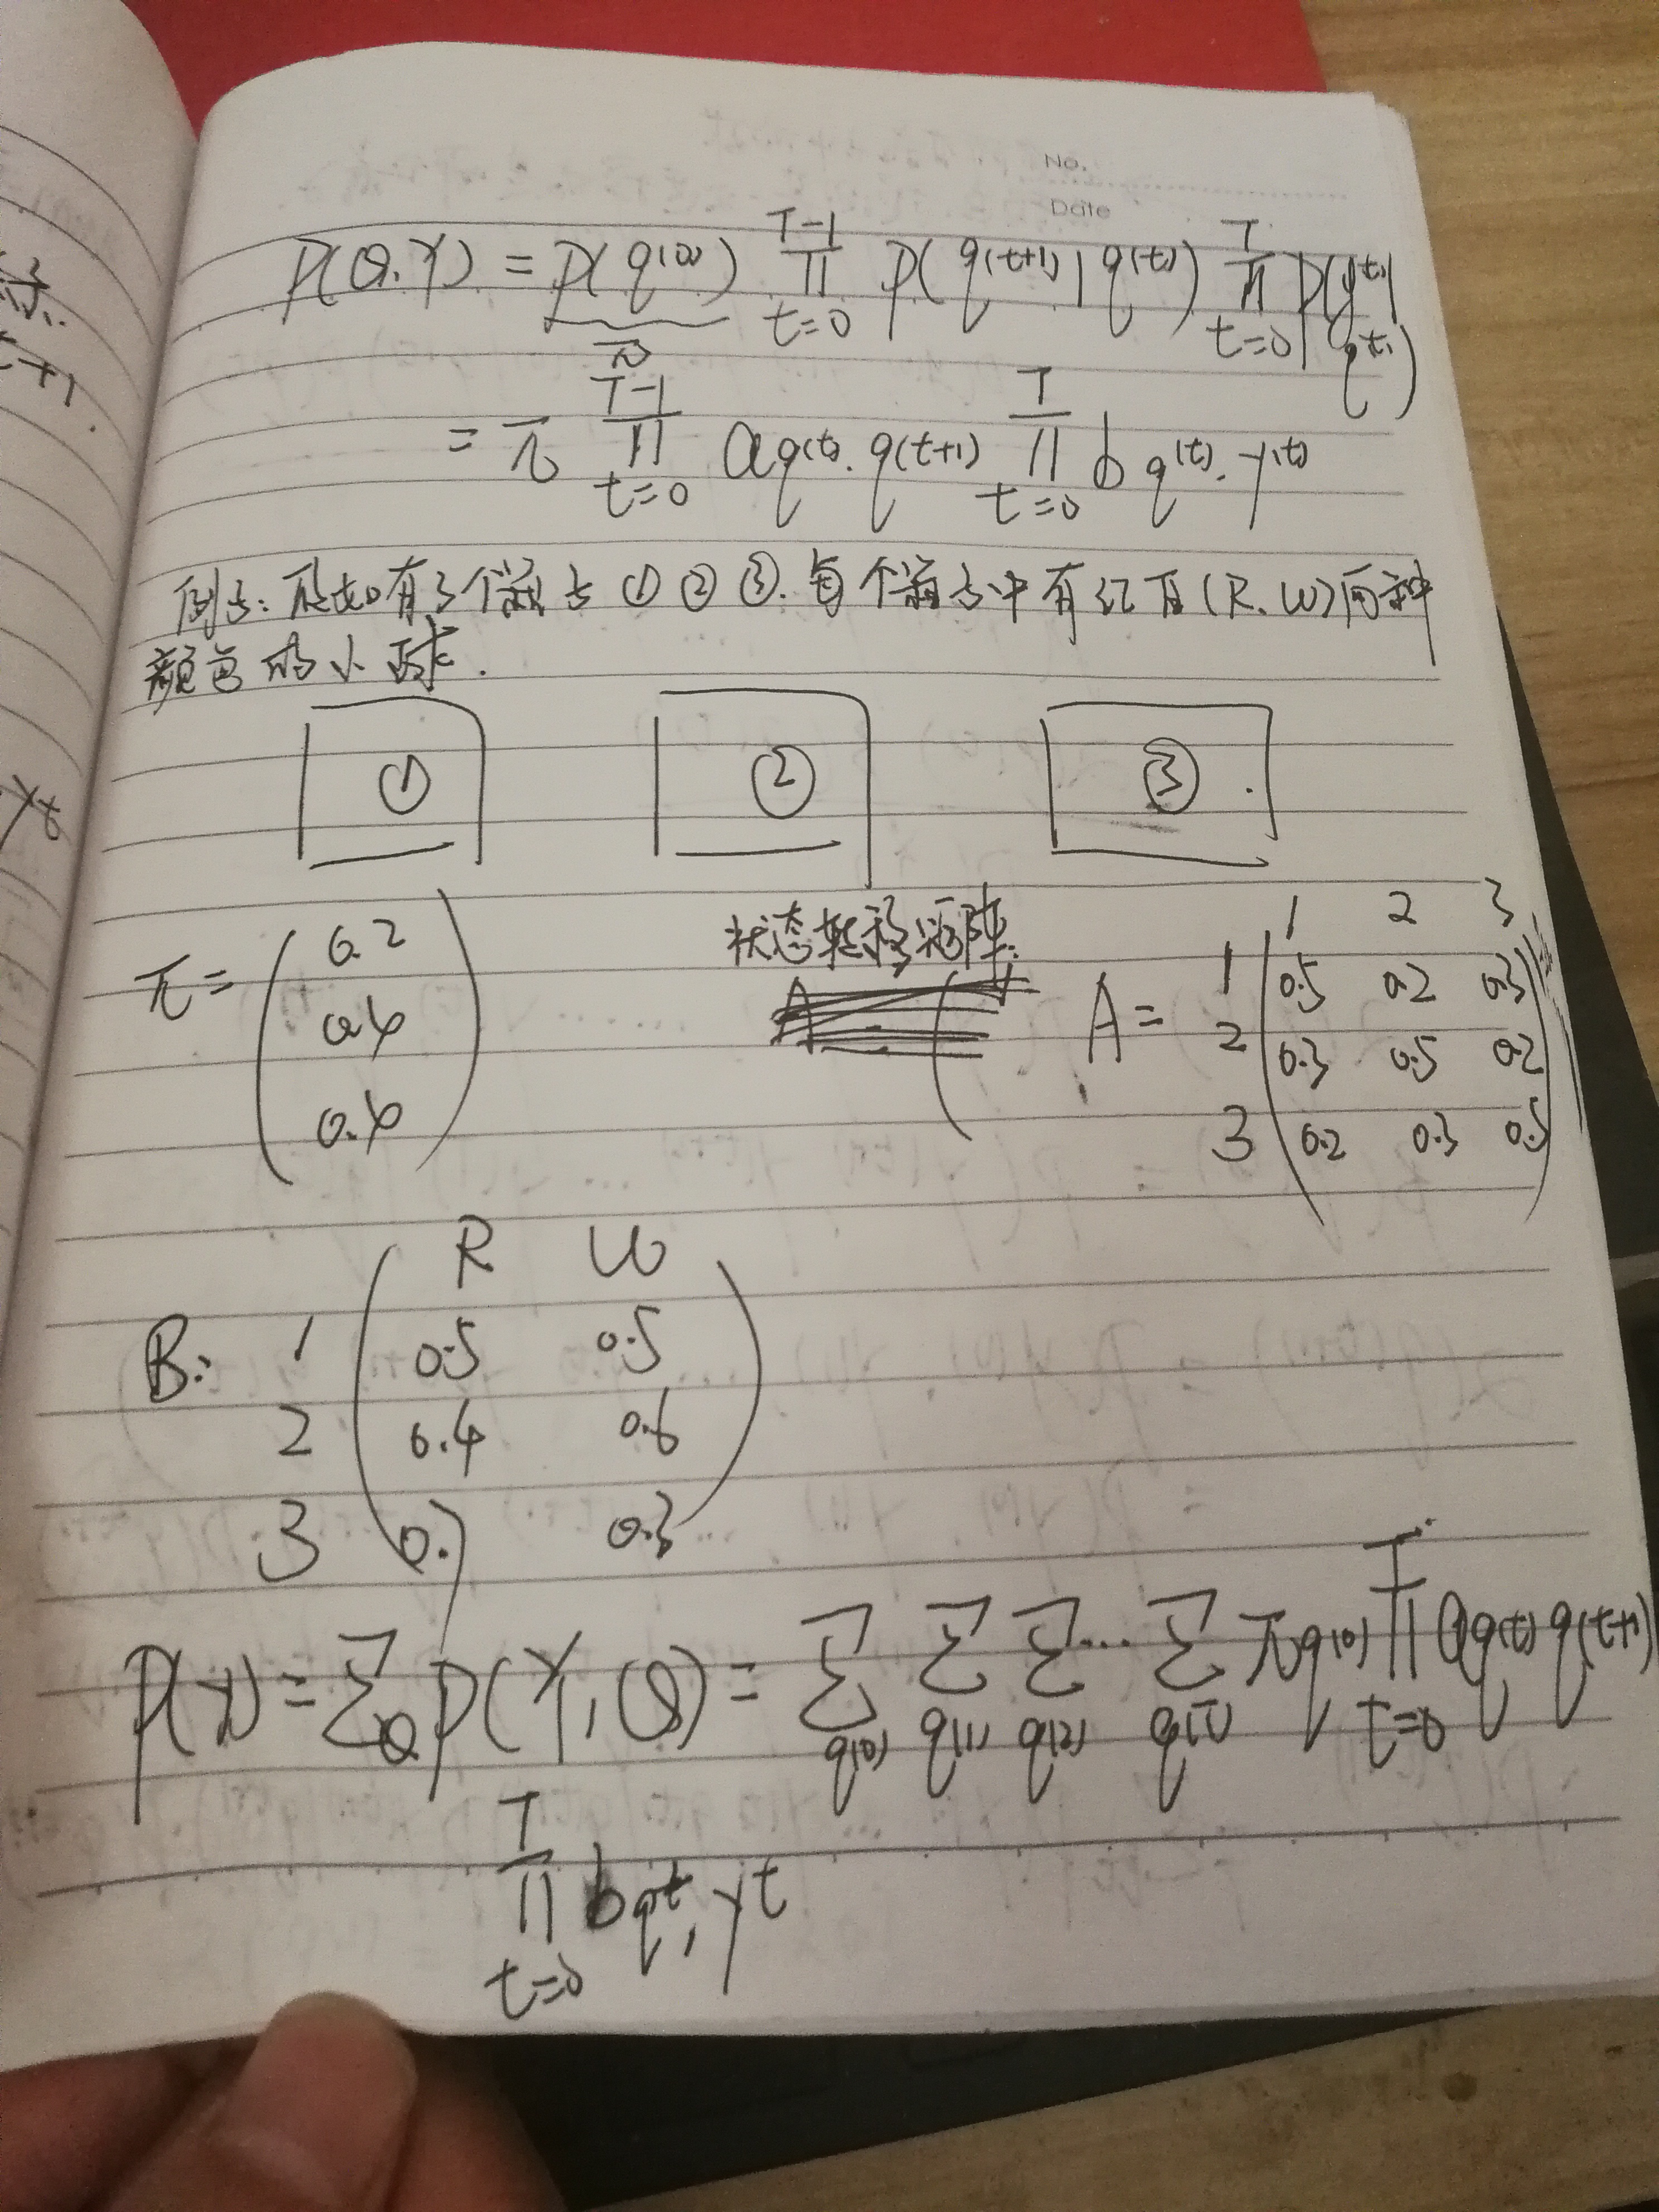 No.
Date
P(Q.Y) = P(q(0)) T-1 Π t=0 P(q(t+1)|q(t)) T Π t=0 P(y(t)|q(t))
π
= π T-1 Π t=0 a q(t). q(t+1) T Π t=0 b q(t). y(t)
例子: 假如有3个箱子 ① ② ③. 每个箱子中有红白(R.W)两种
颜色的小球.
① ② ③
状态转移矩阵:
π = 0.2 0.4 0.4
A = 1 2 3
1 0.5 0.2 0.3
2 0.3 0.5 0.2
3 0.2 0.3 0.5
R W
B: 1 0.5 0.5
2 0.4 0.6
3 0.7 0.3
P(Y) = Σ Q P(Y, Q) = Σ q(0) Σ q(1) Σ q(2) ... Σ q(T) π q(0) T Π t=0 a q(t) q(t+1)
T Π t=0 b qt, yt